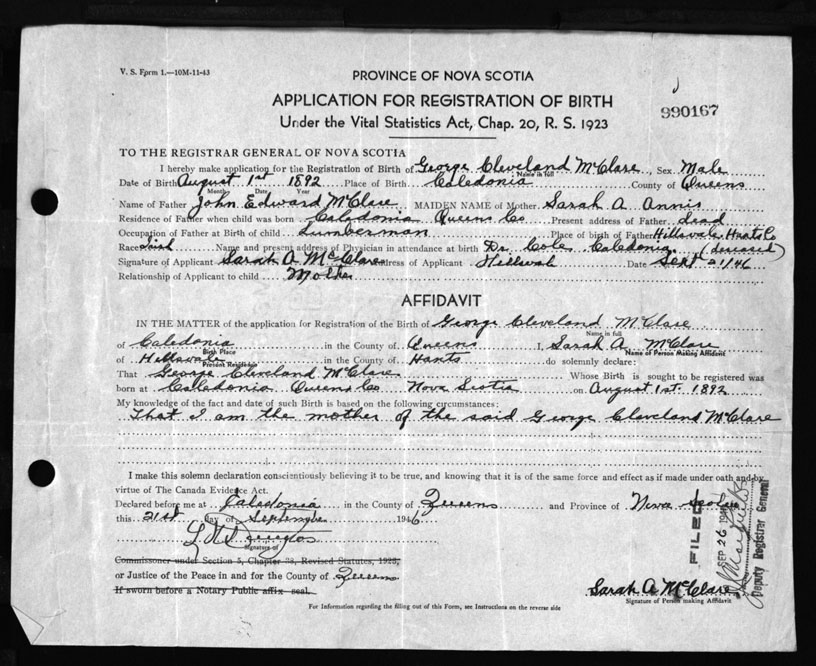 V. S. Form 1.—10M-11-43
PROVINCE OF NOVA SCOTIA
APPLICATION FOR REGISTRATION OF BIRTH
990167
Under the Vital Statistics Act, Chap. 20, R. S. 1923
TO THE REGISTRAR GENERAL OF NOVA SCOTIA
I hereby make application for the Registration of Birth of George Cleveland McClare, Sex Male
Name in full
Date of Birth August 1st 1892 Place of Birth Caledonia County of Queens
Month Date Year
Name of Father John Edward McClare MAIDEN NAME of Mother Sarah A Annis
Residence of Father when child was born Caledonia Queens Co Present address of Father dead
Occupation of Father at Birth of child Lumberman Place of birth of Father Hillsvale Hants Co
Race Name and present address of Physician in attendance at birth Dr. Cole Caledonia (deceased)
Signature of Applicant Sarah A McClare Address of Applicant Hillsvale Date Sept 21/46
Relationship of Applicant to child Mother
AFFIDAVIT
IN THE MATTER of the application for Registration of the Birth of George Cleveland McClare
Name in full
of Caledonia in the County of Queens I, Sarah A McClare
Birth Place Name of Person Making Affidavit
of Hillsvale in the County of Hants do solemnly declare:
Present Residence
That George Cleveland McClare Whose Birth is sought to be registered was
born at Caledonia Queens Co Nova Scotia on August 1st. 1892
My knowledge of the fact and date of such Birth is based on the following circumstances:
That I am the mother of the said George Cleveland McClare
I make this solemn declaration conscientiously believing it to be true, and knowing that it is of the same force and effect as if made under oath and by
virtue of The Canada Evidence Act.
Declared before me at Caledonia in the County of Queens and Province of Nova Scotia
this 21st day of September 1946
Signature of
Commissoner under Section 5, Chapter 38, Revised Statutes, 1923,
or Justice of the Peace in and for the County of Queens
If sworn before a Notary Public affix seal.
FILED
SEP 26 1946
Deputy Registrar General
Sarah A McClare
Signature of Person making Affidavit
For Information regarding the filling out of this Form, see Instructions on the reverse side